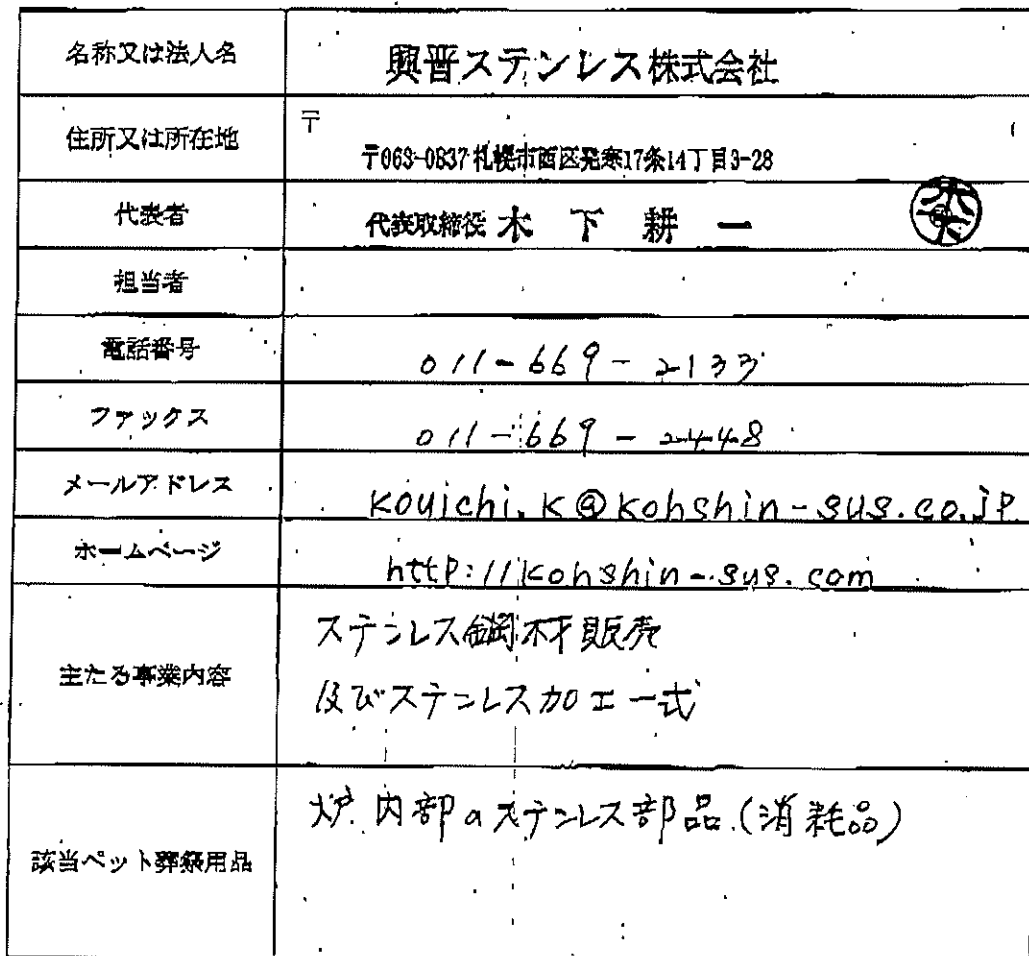 名称又は法人名
興晋ステンレス株式会社
住所又は所在地
〒
〒063-0837 札幌市西区発寒17条14丁目3-28
代表者
代表取締役 木下耕一
木下
担当者
電話番号
011-669-2133
ファックス
011-669-2448
メールアドレス
kouichi.k@kohshin-sus.co.jp
ホームページ
http://kohshin-sus.com
主たる事業内容
ステンレス鋼材販売
及びステンレス加工一式
該当ペット葬祭用品
炉内部のステンレス部品(消耗品)